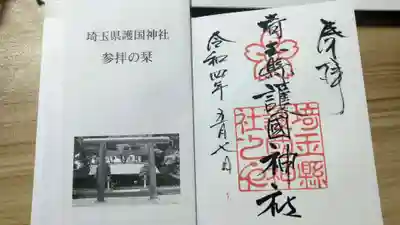 埼玉県護国神社
参拝の栞
奉拝
埼玉縣護國神社
令和四年五月七日